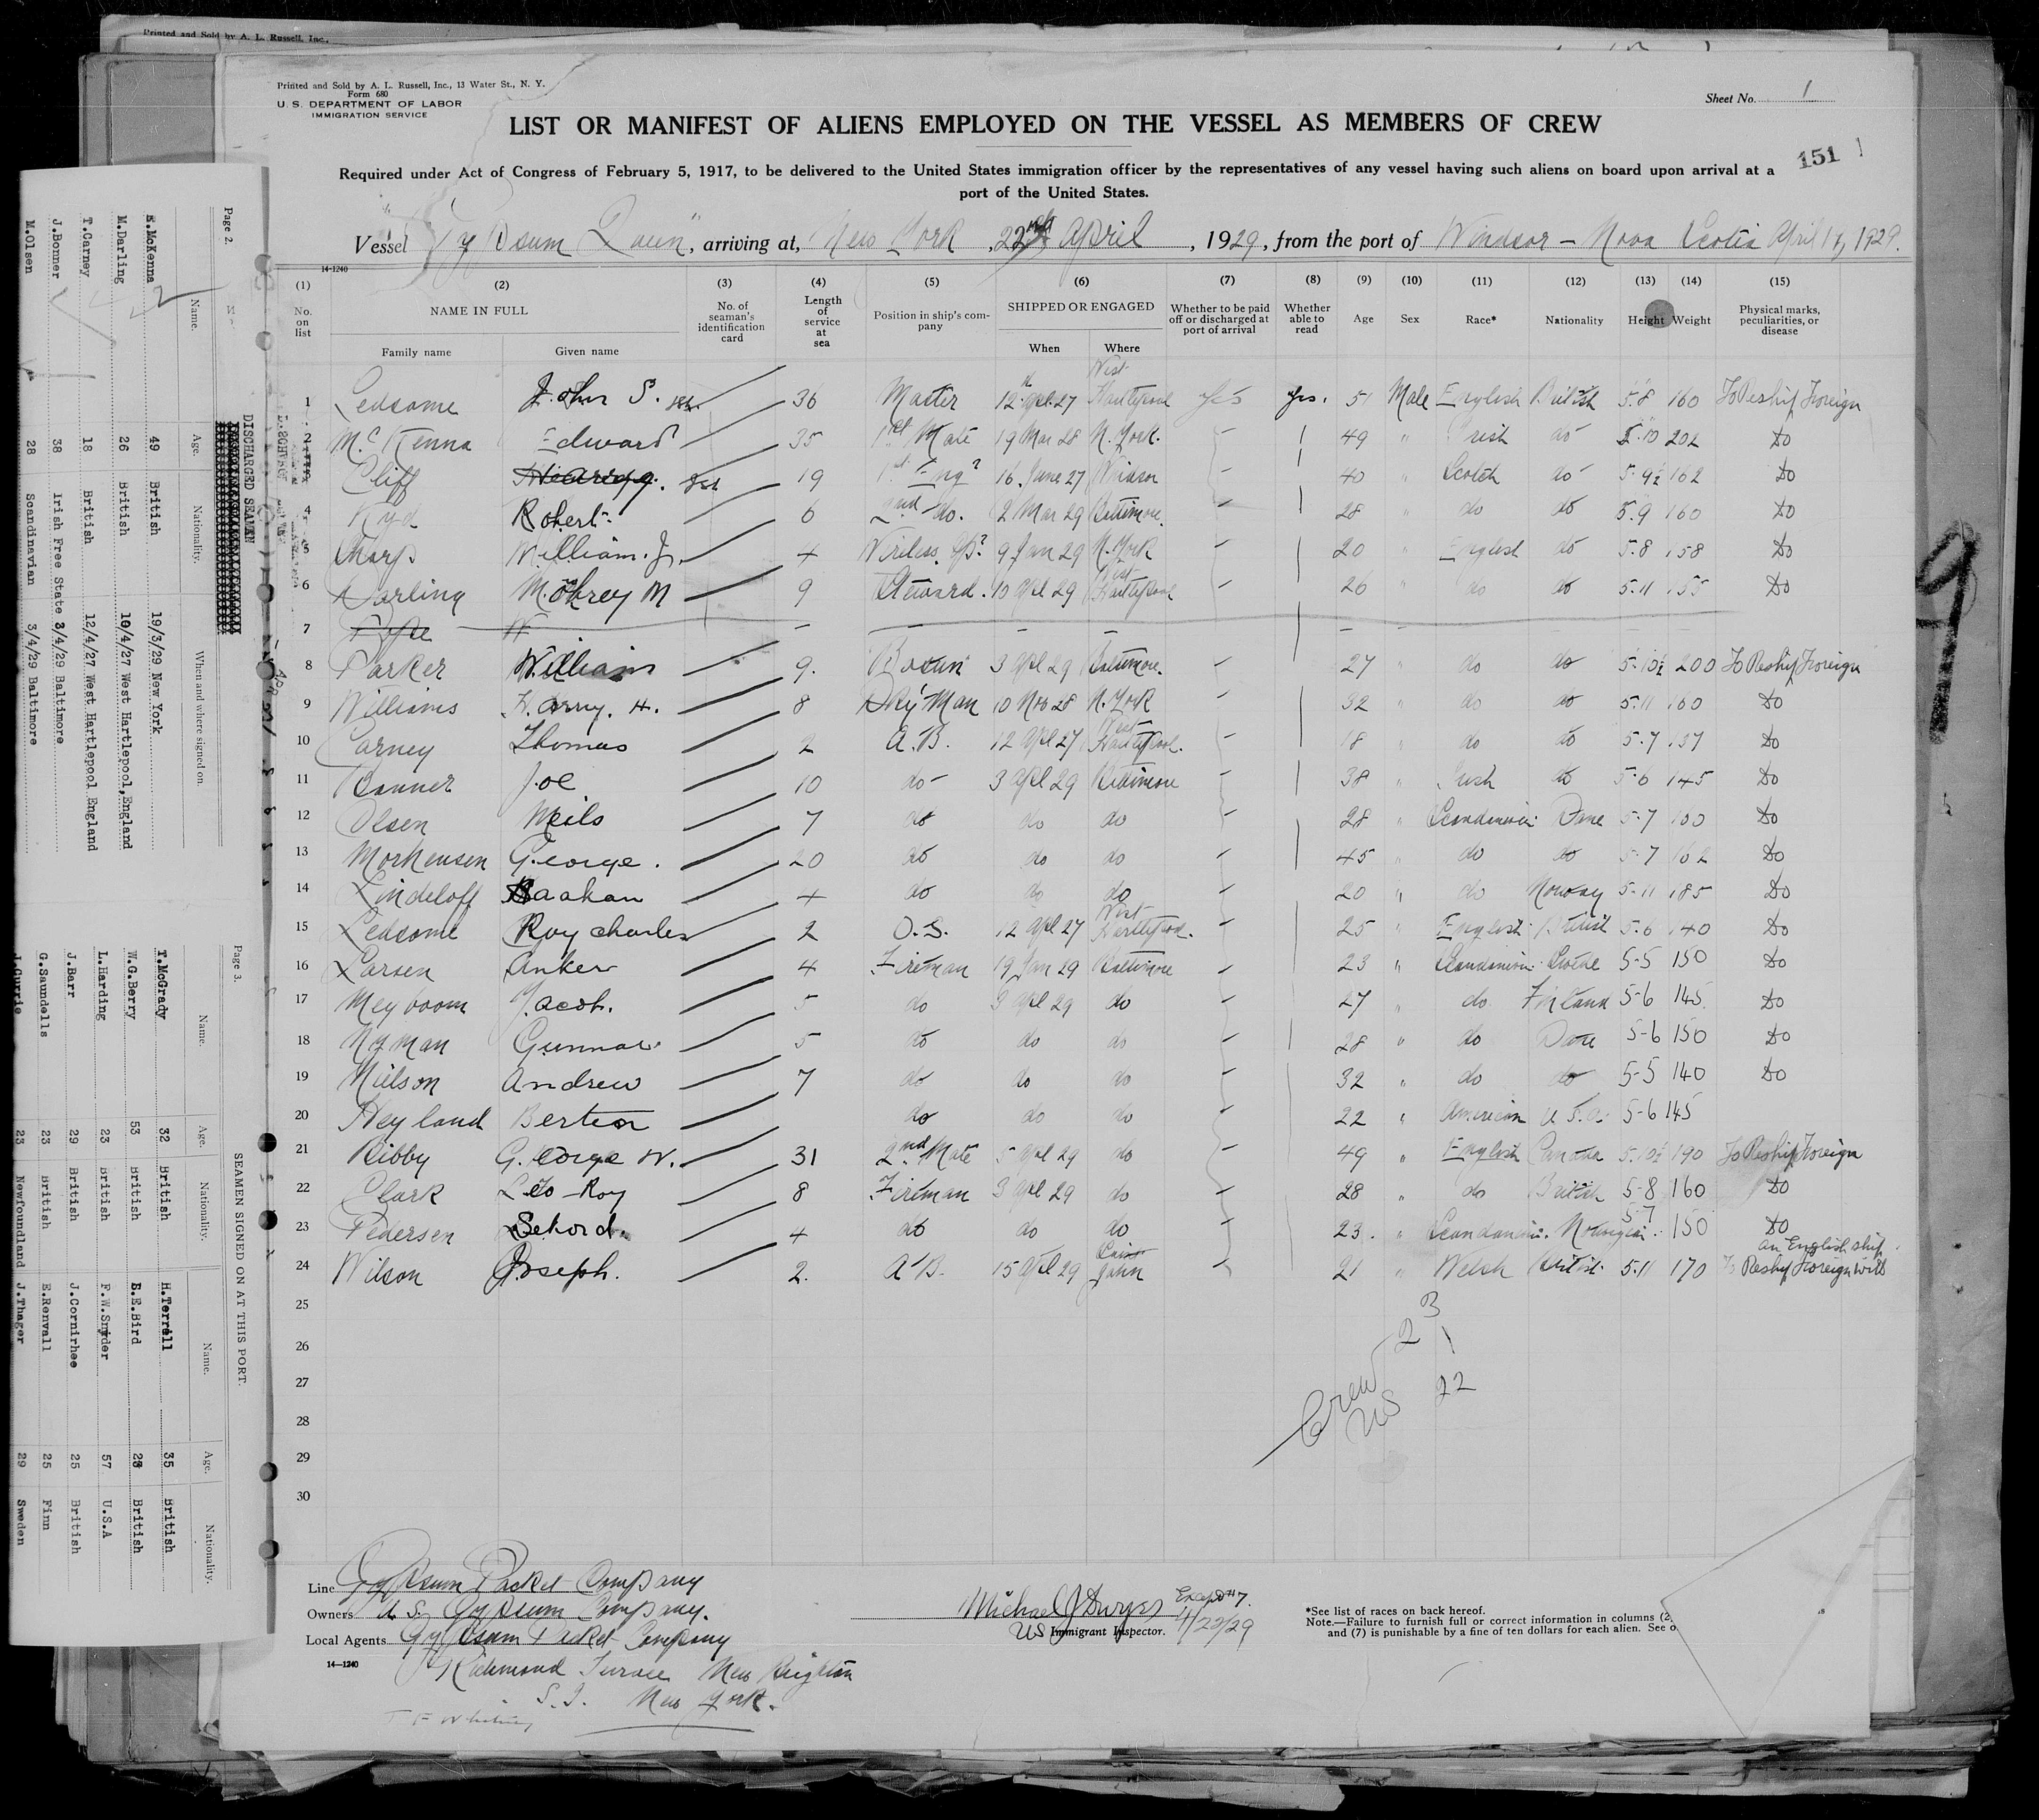 Printed and Sold by A. L. Russell, Inc.,
Printed and Sold by A. L. Russell, Inc., 13 Water St., N. Y.
Form 680
U. S. DEPARTMENT OF LABOR
IMMIGRATION SERVICE
Sheet No. 1
LIST OR MANIFEST OF ALIENS EMPLOYED ON THE VESSEL AS MEMBERS OF CREW
151
Required under Act of Congress of February 5, 1917, to be delivered to the United States immigration officer by the representatives of any vessel having such aliens on board upon arrival at a
port of the United States.
Vessel "Gypsum", arriving at, New York, 22nd April, 1929, from the port of Windsor - Nova Scotia April 17, 1929.
14-1240
(1) (2) (3) (4) (5) (6) (7) (8) (9) (10) (11) (12) (13) (14) (15)
No. on list NAME IN FULL Family name Given name No. of seaman's identification card Length of service at sea Position in ship's company SHIPPED OR ENGAGED When Where Whether to be paid off or discharged at port of arrival Whether able to read Age Sex Race* Nationality Height Weight Physical marks, peculiarities, or disease
1 Ledsome John S. 36 Master 12th Apl. 27 West Hartlepool Yes yes. 51 Male English British 5.8 160 To Reship Foreign
2 McKenna Edward 35 1st Mate 19 Mar 28 N. York. 49 " Irish do 5.10 202 Do
3 Cliff 19 1st Eng 16 June 27 Windsor 40 " Scotch do 5.9½ 162 Do
4 Robert 6 2nd do. 2 Mar 29 Baltimore 28 " do do 5.9 160 Do
5 Sharp William. J. 4 Wireless Op 9 Jan 29 N. York 20 " English do 5.8 158 Do
6 Darling M 9 Steward. 10 Apl 29 West Hartlepool 26 " do do 5.11 155 Do
7 Pope W
8 Parker William 9. Bosun 3 Apl 29 Baltimore. 27 " do do 5.10½ 200 To Reship Foreign
9 Williams Harry. H. 8 Dky Man 10 Nov 28 N. York 32 " do do 5.11 160 Do
10 Carney Thomas 2 A.B. 12 Apl 27 West Hartlepool. 18 " do do 5.7 137 Do
11 Bonner Joe 10 do 3 Apl 29 Baltimore 38 " Irish do 5.6 145 Do
12 Olsen Neils 7 do do do 28 " Scandinavin Dane 5.7 Do
13 Morkensen George. 20 do do do 45 " do do 5.7 162 Do
14 Lindeloff Haakan 4 do do do 20 " do Norway 5.11 185 Do
15 Ledsome Roy Charles 2 O.S. 12 Apl 27 West Hartlepool. 25 " English British 5.6 140 Do
16 Larsen Anker 4 Fireman 19 Jan 29 Baltimore 23 " Scandinavin 5-5 150 Do
17 Meyboom Jacob. 5 do 3 Apl 29 do 27 " do Finland 5-6 145 Do
18 Nyman Gunnar 5 do do do 28 " do Dane 5-6 150 Do
19 Nielson Andrew 7 do do do 32 " do do 5-5 140 Do
20 Heyland Berton do do do 22 " American U.S.A. 5-6 145
21 Bibby George W. 31 2nd Mate 5 Apl 29 do 49 " English Canada 5.10½ 190 To Reship Foreign
22 Clark Leo-Roy 8 Fireman 3 Apl 29 do 28 " do British 5-8 160 Do
23 Pedersen 4 do do do 23. " Scandanvin. Norwegian. 5-7 150 Do
24 Wilson Joseph. 2. A B. 15 Apl 29 John 21 " Welsh British 5.11 170 To Reship Foreign with an English ship
25
26
27
28
29
30
Crew 23
1
US 22
Line Gypsum Packet Company
Owners U.S. Gypsum Company.
Local Agents Gypsum Packet Company
Richmond Terrace New Brighton
S.I. New York.
14-1240
Michael J Dwyer Except #7.
US Immigrant Inspector. 4/22/29
*See list of races on back hereof.
Note.—Failure to furnish full or correct information in columns (2,
and (7) is punishable by a fine of ten dollars for each alien. See o
Page 2.
DISCHARGED SEAMEN
Name. Age. Nationality. When and where signed on.
E.McKenna 49 British 19/3/29 New York
M.Darling 26 British 10/4/27 West Hartlepool,England
T.Carney 18 British 12/4/27 West Hartlepool England
J.Bonner 38 Irish Free State 3/4/29 Baltimore
M.Olsen 28 Scandinavian 3/4/29 Baltimore
Page 3.
SEAMEN SIGNED ON AT THIS PORT.
Name. Age. Nationality. Name. Age. Nationality.
T.McGrady 32 British H.Terrell 35 British
W.G.Berry 53 British B.E.Bird 28 British
L.Harding 23 British F.W.Snyder 57 U.S.A
J.Barr 29 British J.Cornirhee 25 British
G.Saundells 23 British E.Renvall 25 Finn
J.Currie 23 Newfoundland J.Thager 29 Sweden